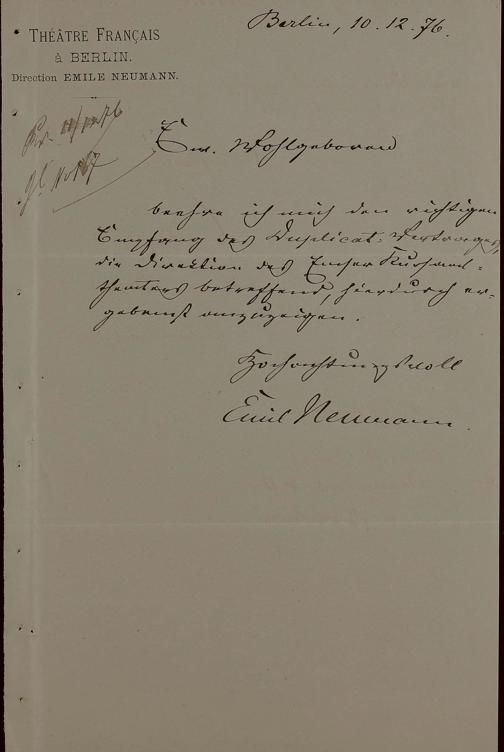 THÉÂTRE FRANÇAIS
à BERLIN.
Direction EMILE NEUMANN.
Berlin, 10.12.76.
Ew. Wohlgeboren
beehre ich mich den richtigen
Empfang des Duplicat-Vertrages,
die Direktion des Emser
theaters betreffend, hierdurch er-
gebenst anzuzeigen.
Hochachtungsvoll
Emil Neumann.